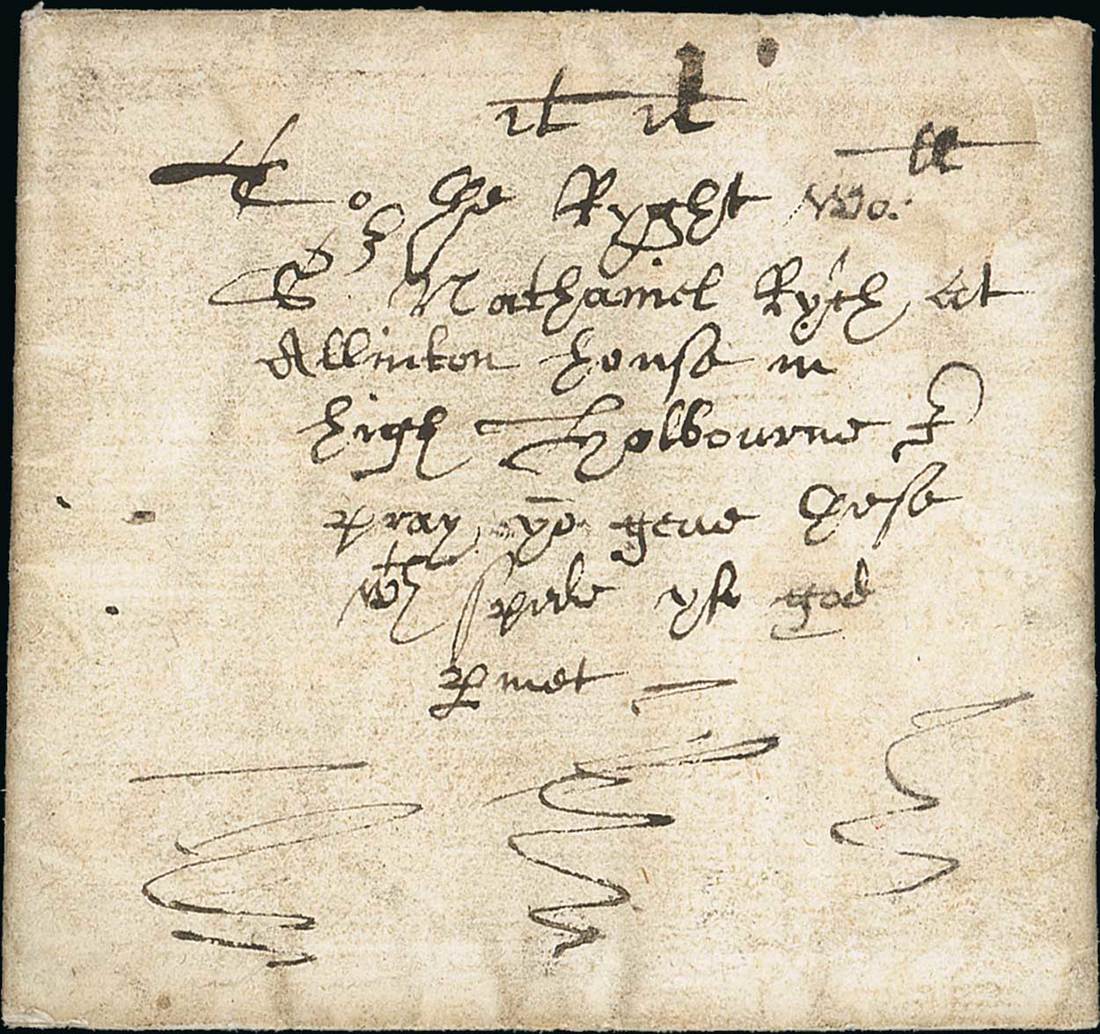 To the Ryght Wo:
Sr Nathaniel Rych, at
Allinton house in
high Holbourne I
pray yo geue these
wth spede yf god
pmet